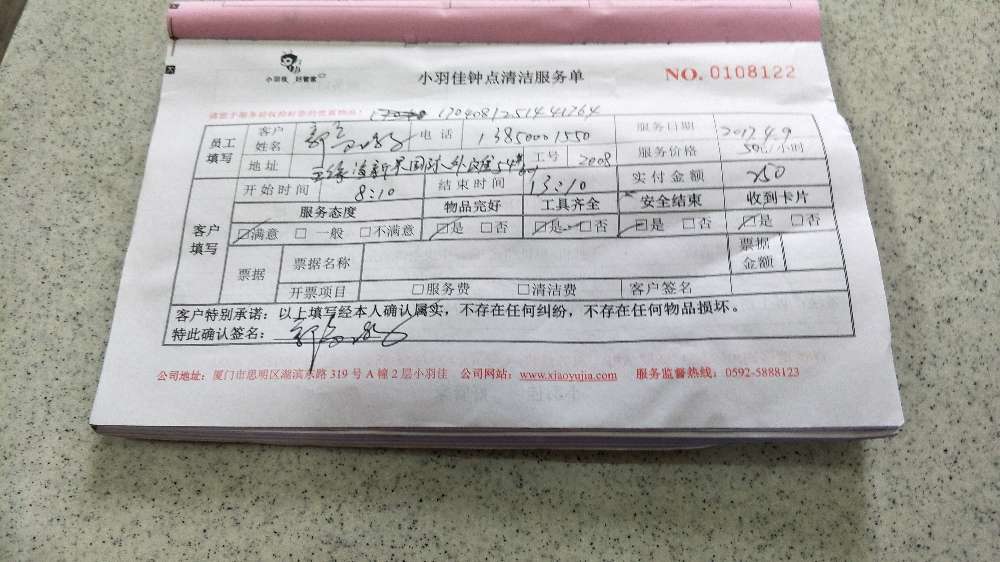 小羽佳 好管家
小羽佳钟点清洁服务单
NO. 0108122
17040812514441764
员工填写 客户姓名 电话 13850001550 服务日期 2017.4.9
地址 工号 2008 服务价格 50元/小时
客户填写 开始时间 8:10 结束时间 13:10 实付金额 250
服务态度 物品完好 工具齐全 安全结束 收到卡片
满意 一般 不满意 是 否 是 否 是 否 是 否
票据 票据名称 票据金额
开票项目 服务费 清洁费 客户签名
客户特别承诺：以上填写经本人确认属实，不存在任何纠纷，不存在任何物品损坏。
特此确认签名：
公司地址：厦门市思明区湖滨东路 319 号 A 幢 2 层小羽佳 公司网站：www.xiaoyujia.com 服务监督热线：0592-5888123